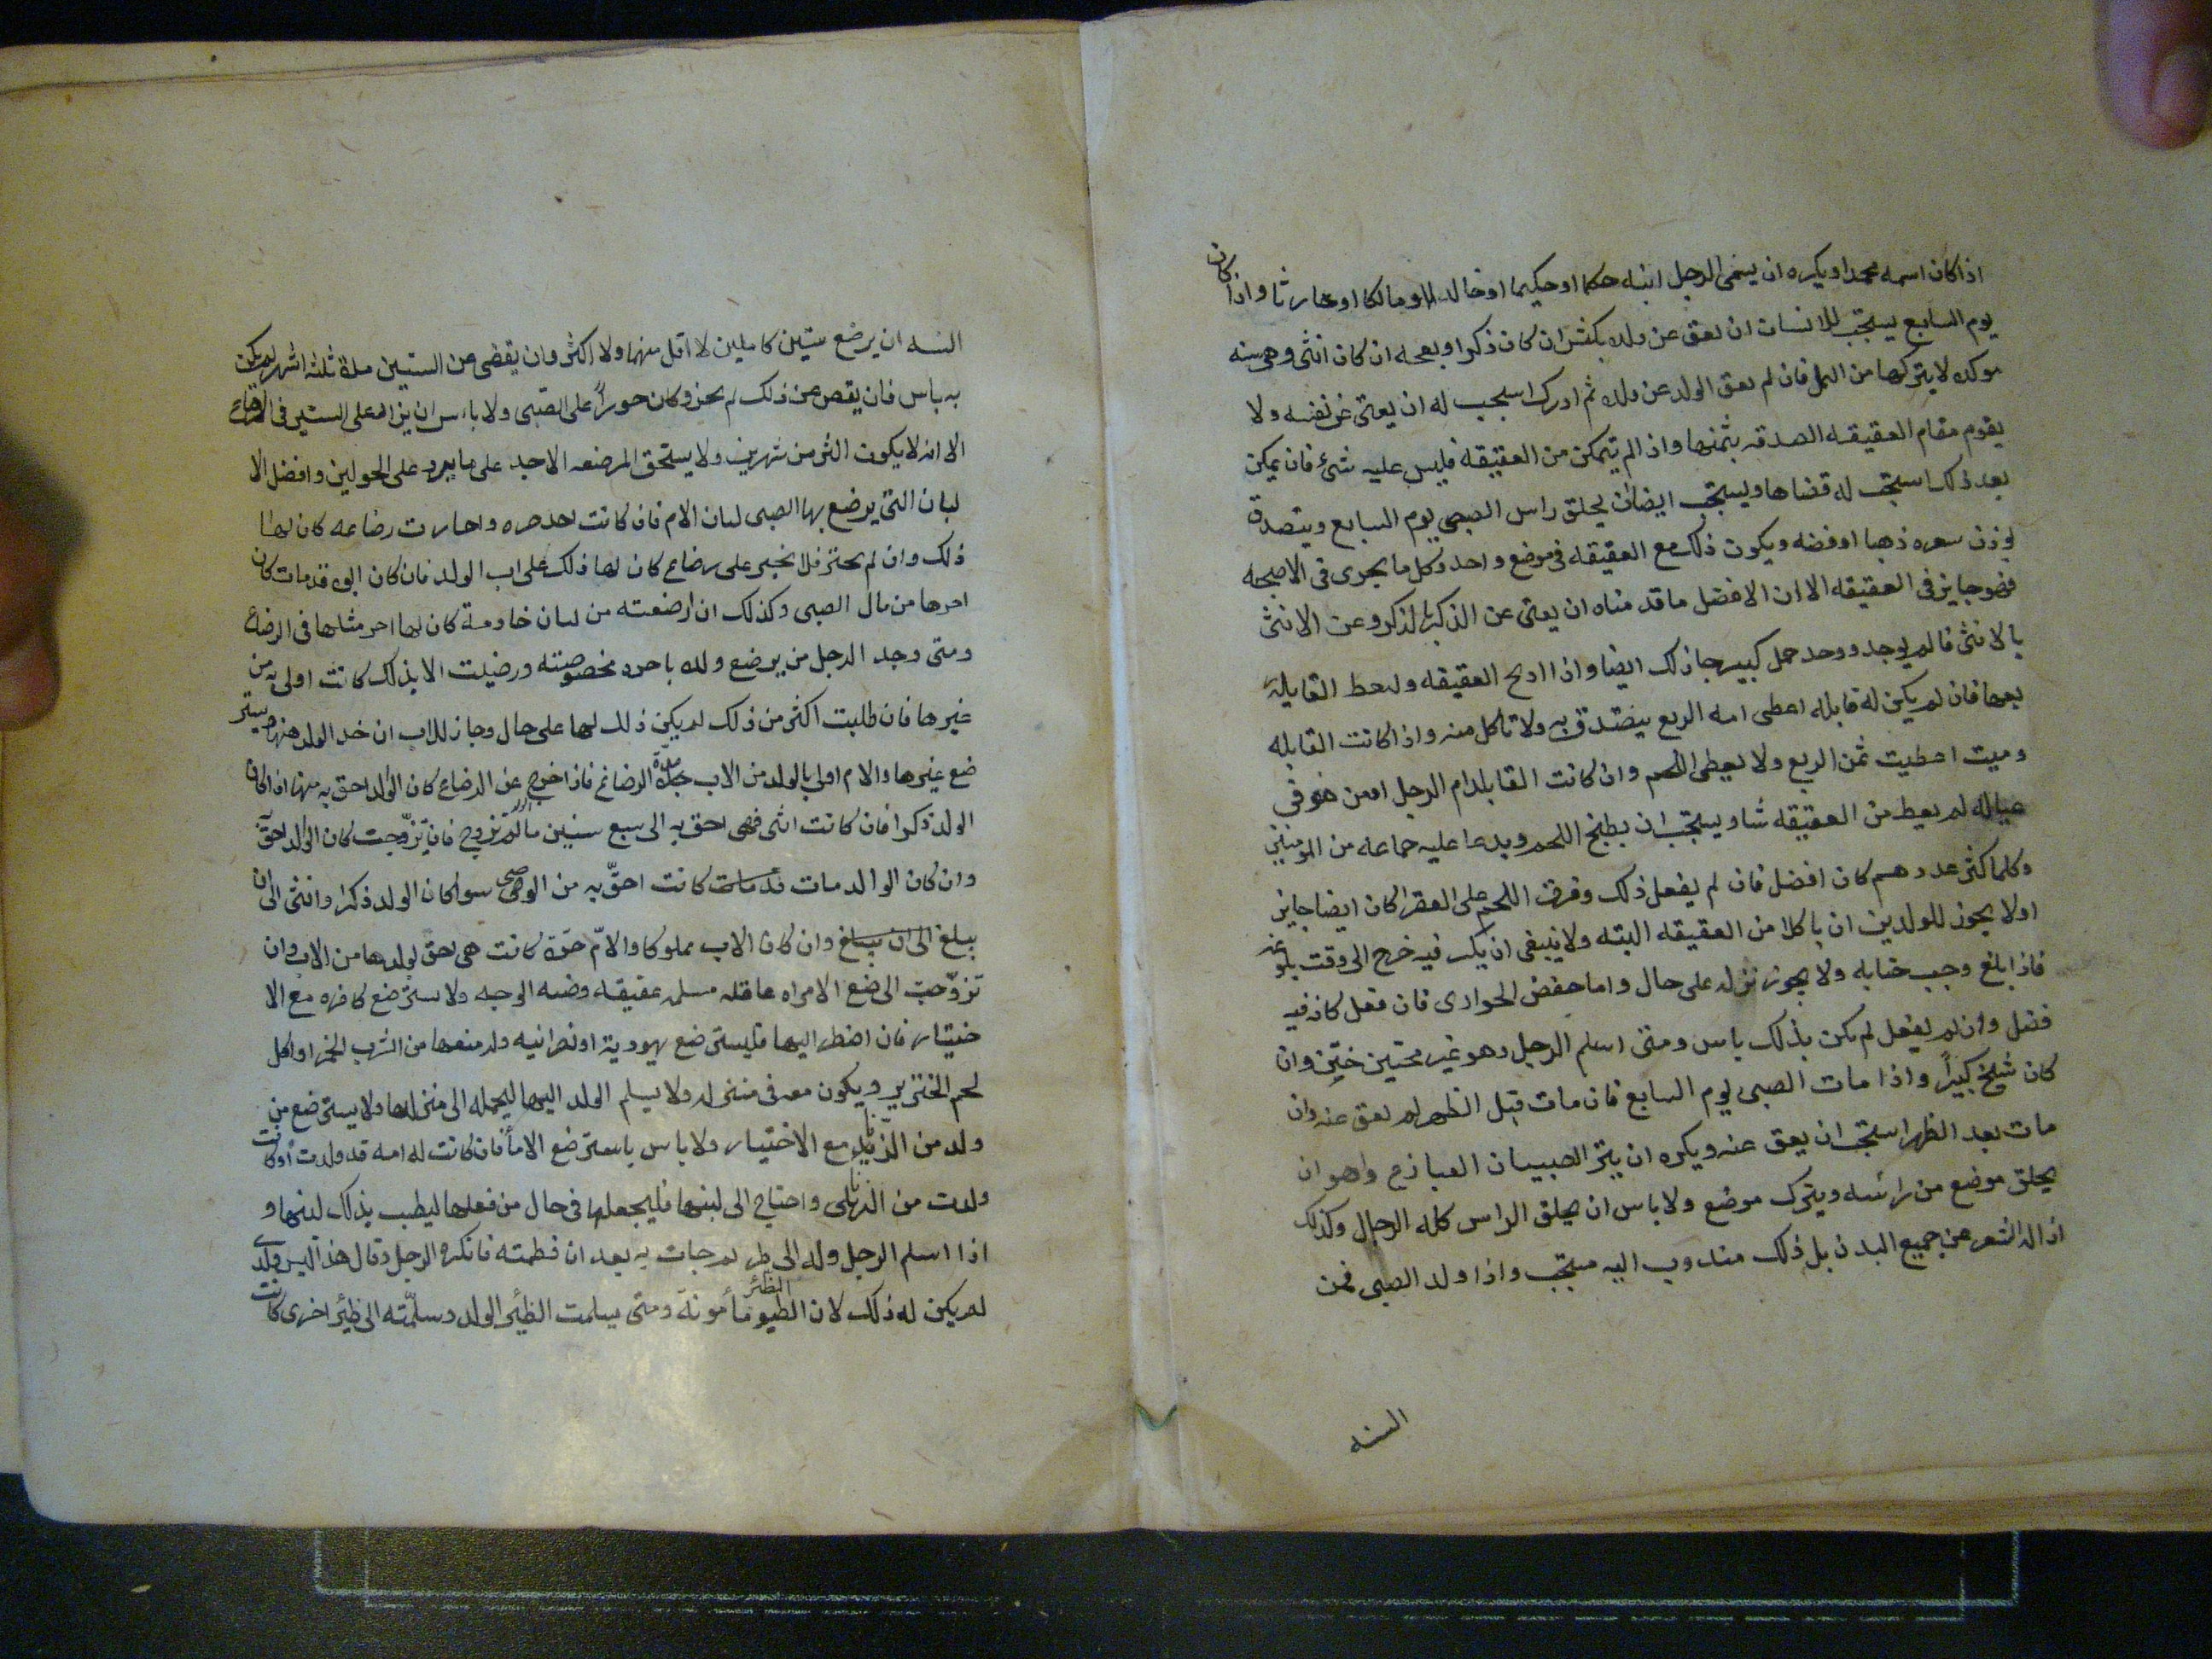 اذا كان اسمه محمدا ويكره ان يسمى الرجل ابنه حكما او حكيما او خالدا او مالكا او حارثا واذا كان
يوم السابع يستحب للانسان ان يعق عن ولده بكبش ان كان ذكرا وبعجه ان كان انثى وهى سنه
موكده لا يتركها من فان لم يعق الولد عن ولده ثم ادرك استحب له ان يعق عن نفسه ولا
يقوم مقام العقيقه الصدقه بثمنها واذا لم يتمكن من العقيقه فليس عليه شىء فان يمكن
بعد ذلك استحب له قضاها ويستحب ايضا ان يحلق راس الصبى يوم السابع ويتصدق
بوزن سعره ذهبا او فضه ويكون ذلك مع العقيقه فى موضع واحد وكل ما يجرى فى الاضحيه
فهو جايز فى العقيقه الا ان الافضل ما قدمناه ان يعق عن الذكر بالذكر وعن الانثى
بالانثى فان لم يوجد ووجد حمل كبير جاز ذلك ايضا واذا ادبح العقيقه ولىعط القابله
فان لم يكن له قابله اعطى امه الربع يتصدق به ولا تاكل منه واذا كانت القابله
وميت اعطيت ثمن الربع ولا يعطى اللحم وان كانت القابله ام الرجل او من هو فى
عياله لم يعط من العقيقه شا ويستحب ان يطبخ اللحم ويدعا عليه جماعه من المومنين
وكلما كثر عددهم كان افضل فان لم يفعل ذلك وفرق اللحم على الفقرا كان ايضا جايز
او لا يجوز للولدين ان ياكلا من العقيقه البته ولا ينبغى ان يكسر فيه خرج الى وقت بلوغه
فاذا بلغ وجب ختانه ولا يجوز تركه على حال واما خفض الجوارى فان فعل كان فيه
فضل وان لم يفعل لم يكن بذلك باس ومتى اسلم الرجل وهو غير مختين ختين وان
كان شيخ كبيرا واذا مات الصبى يوم السابع فان مات قبل الظهر لم يعق عنه وان
مات بعد الظهر استحب ان يعق عنه ويكره ان يترك الصبيان القنازع وهو ان
يحلق موضع من رائسه ويترك موضع ولا باس ان يحلق الراس كله الرجال وكذلك
ازاله الشعر عن جميع البدن بل ذلك مندوب اليه مستحب واذا ولد الصبى فمن
السنه
السنه ان يرضع سنتين كاملين لا اقل منها ولا اكثر وان يقضى عن السنتين مدة ثلثه اشهر لم يكن
به باس فان يقص عن ذلك لم يجز وكان جورا على الصبى ولا باس ان يزاد على السنتين فى الرضاع
الا انه لا يكون اكثر من شهرين ولا يستحق المرضعه الاجر على ما يرد على الحولين وافضل الا
لبان التى يرضع بها الصبى لبان الام فان كانت حره واختارت رضاعه كان لها
ذلك وان لم يختر فلا يخبر على رضاع كان لها ذلك على اب الولد فان كان ابوه قد مات كان
اجرها من مال الصبى وكذلك ان ارضعته من لبان خادمة كان لها اجر مثلها فى الرضاع
ومتى وجد الرجل من يرضع ولده باجره مخصوصته ورضيت الا بذلك كانت اولى به من
غيرها فان طلبت اكثر من ذلك لم يكن ذلك لها على حال وجاز للاب ان خذ الولد منها ويستر
ضع غيرها والام اولى بالولد من الاب مدة الرضاع فاذا خرج عن الرضاع كان الوالد احق به منها اذا كان
الولد ذكرا فان كانت انثى فهى احق به الى سبع سنين ما لم تزوج فان تزوجت كان الوالد احق
وان كان الوالد مات قد مات كانت احق به من الوصى سوا كان الولد ذكرا وانثى الى ان
يبلغ الى ان يبلغ وان كان الاب مملوكا والام حرة كانت هى احق بولدها من الاب وان
تزوجت الى ضع الا امراه عاقله مسلمه عفيفه وضيه الوجه ولا سترضع كافره مع الا
ختيار فان اضطر اليها فليسترضع يهودية او نصرانيه ولىمنعها من الشرب الخمر او اكل
لحم الخنزير ويكون معه فى منزله ولا يسلم الولد اليها ليحمله الى منزلها ولا يسترضع من
ولد من الزنا مع الاختيار ولا باس باسترضع الاما فان كانت له امه قد ولدت او كانت
ولدت من الزنا واحتاج الى لبنها فليجعلها فى حال من فعلها ليطيب بذلك لبنها و
اذا اسلم الرجل ولده الى ظر ثم جات به بعد ان فطمته فانكره الرجل وقال هذا ليس ولدى
لم يكن له ذلك لان الظئر مأمونة ومتى سلمت الظئر الولد وسلمته الى ظئر اخرى كانت